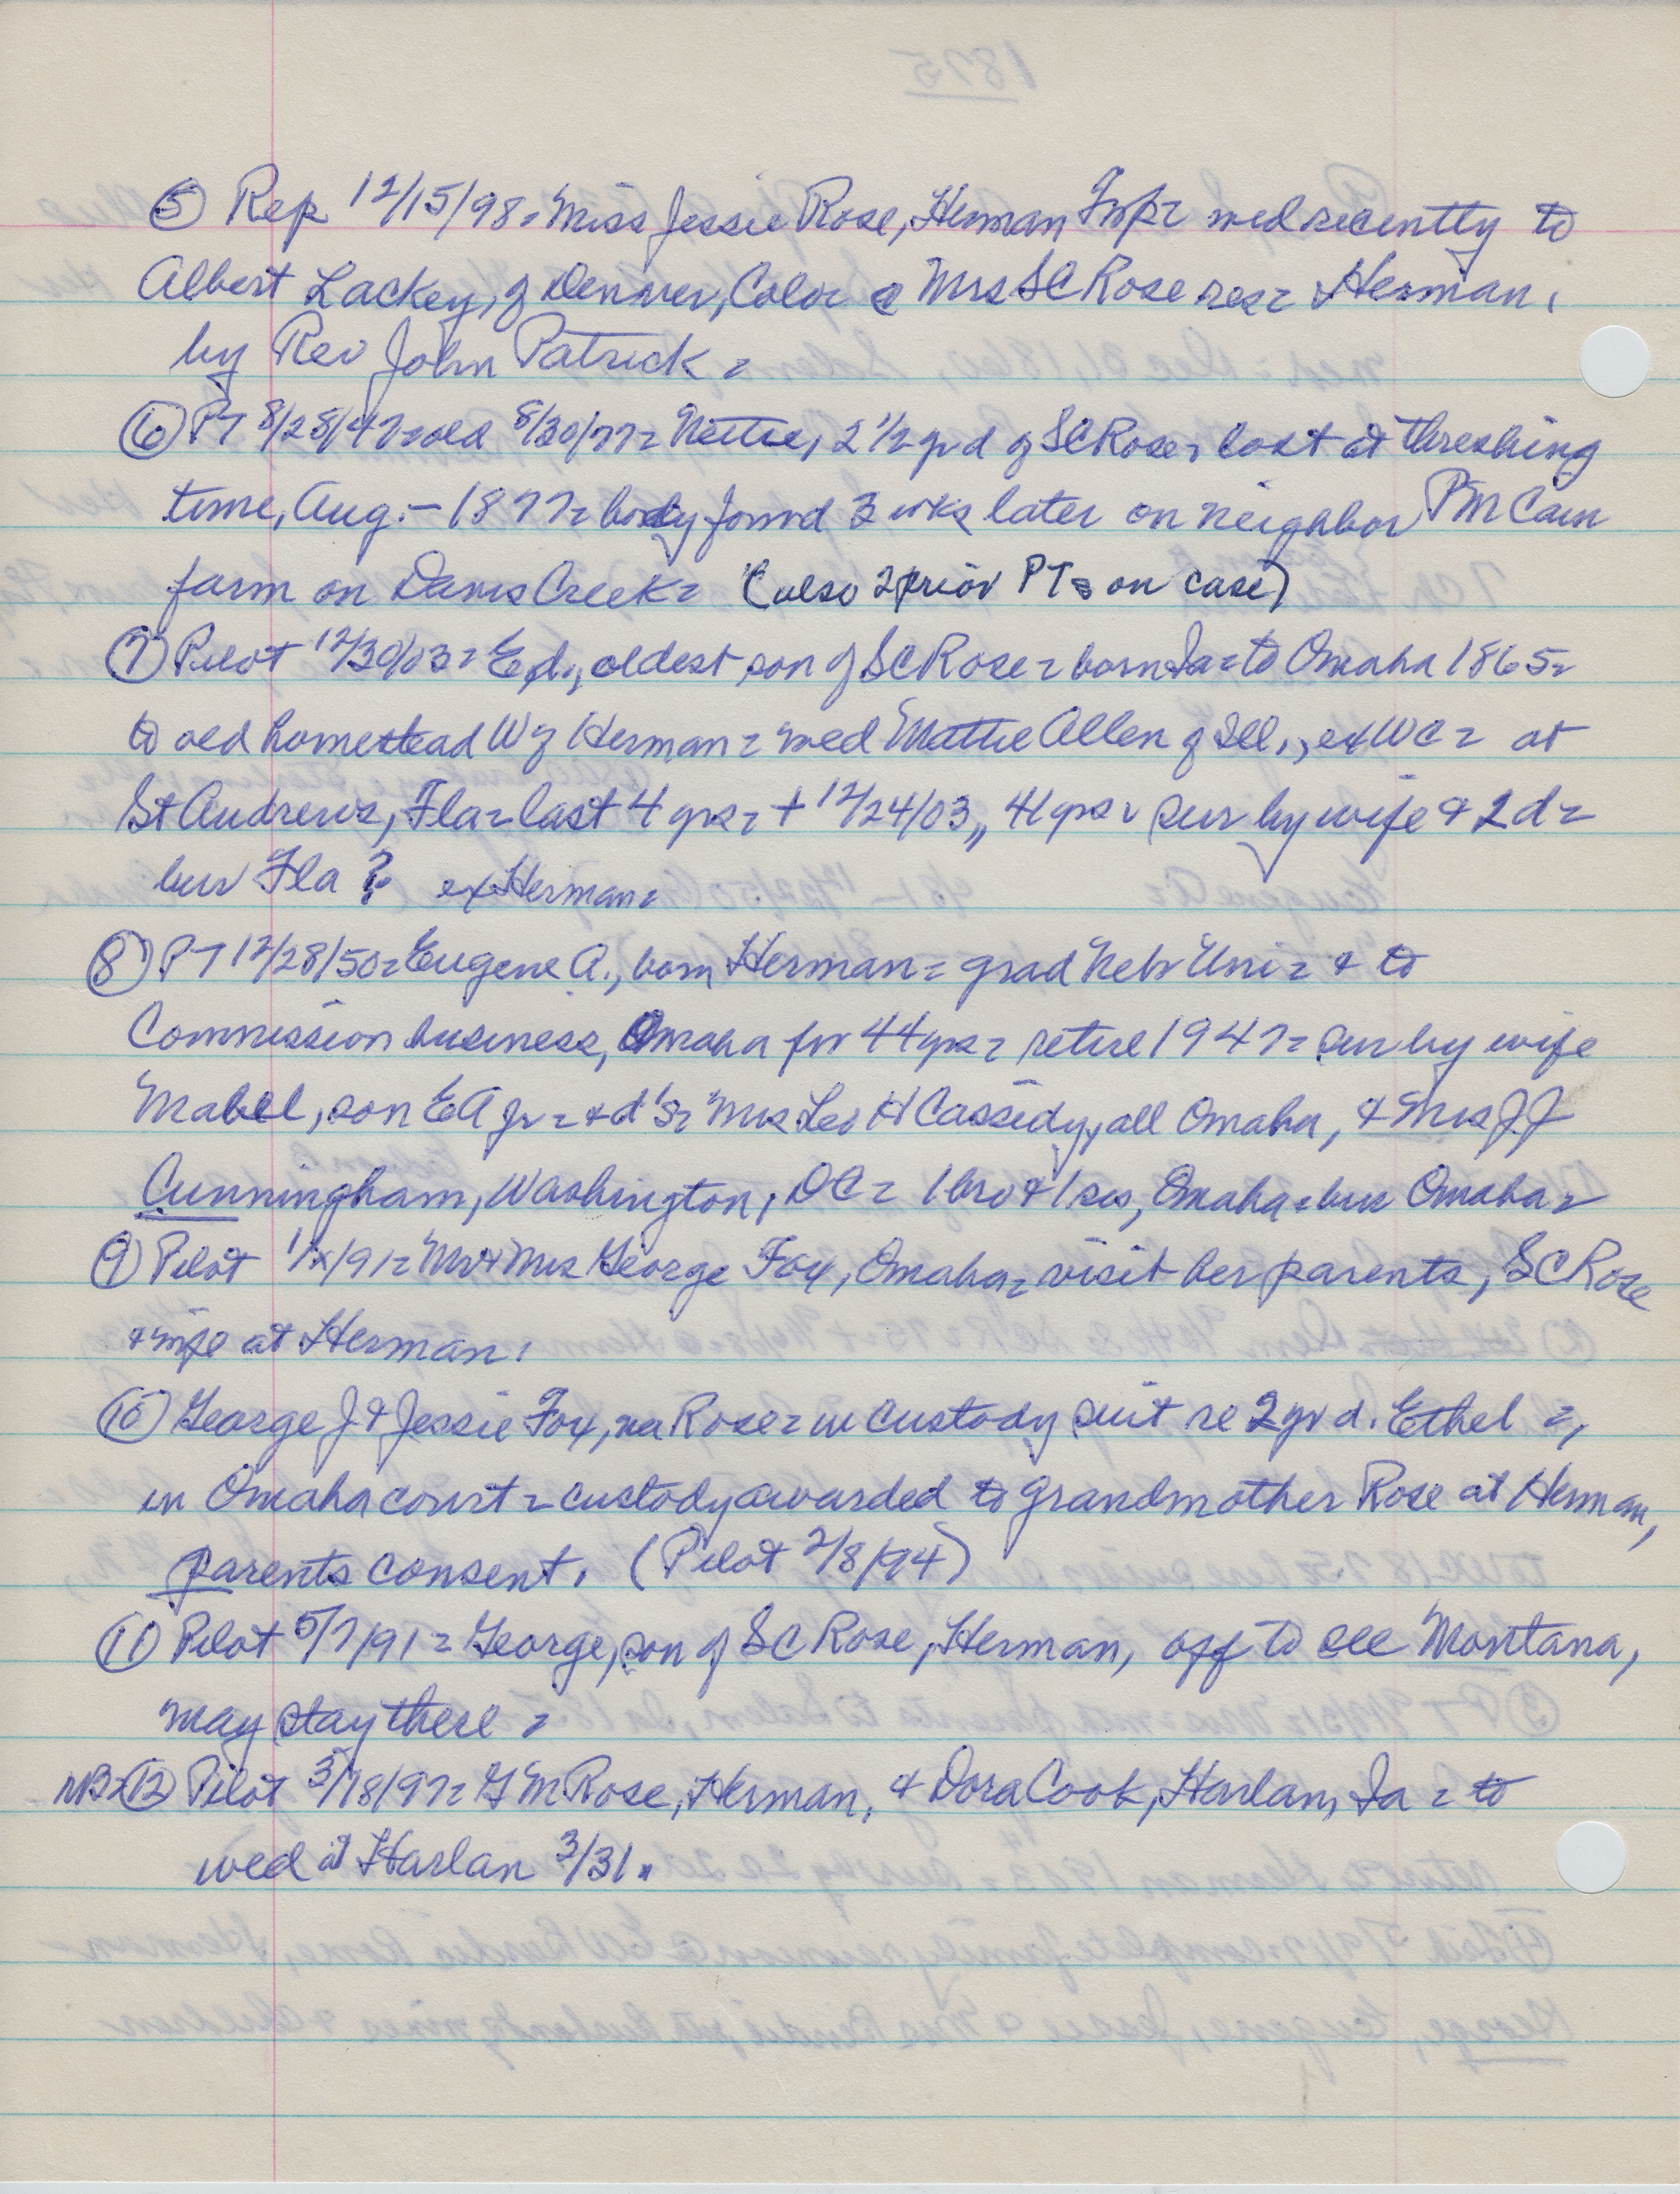 ⑤ Rep 12/15/98 = Miss Jessie Rose, Herman Twp = wed recently to
Albert Lackey, of Denver, Color @ Mrs SC Rose res = Herman,
by Rev John Patrick =
⑥ PT 8/28/47 = old 8/30/77 = Nettie, 2 1/2 yr d of SC Rose, lost at threshing
time, Aug. - 1877 = body found 3 wks later on neighbor PM Cain
farm on Davis Creek = (also 2 prior PTs on case)
⑦ Pilot 12/30/03 = Ed., oldest son of SC Rose = born Ia = to Omaha 1865 =
to old homestead W of Herman = wed Mattie Allen of Ill., ex WC = at
St Andrews, Fla = last 4 yrs = + 12/24/03,, 41 yrs = sur by wife & 2 d =
bur Fla ? ex Herman =
⑧ PT 12/28/50 = Eugene A., born Herman = grad Nebr Uni = & to
Commission business, Omaha for 44 yrs = retire 1947 = sur by wife
Mabel, son EA Jr = & d's = Mrs Leo H Cassidy, all Omaha, & Mrs J.J
Cunningham, Washington, DC = 1 bro & 1 sis, Omaha = bur Omaha =
⑨ Pilot 1/x/91 = Mr & Mrs George Fox, Omaha = visit her parents, SC Rose
& wife at Herman.
⑩ George J & Jessie Fox, nee Rose = in custody suit re 2 yr d. Ethel =,
in Omaha court = custody awarded to grandmother Rose at Herman,
parents consent. (Pilot 2/8/94)
⑪ Pilot 5/7/91 = George, son of SC Rose, Herman, off to see Montana,
may stay there =
NB = ⑫ Pilot 3/18/97 = G M Rose, Herman, & Dora Cook, Harlan, Ia = to
wed at Harlan 3/31.